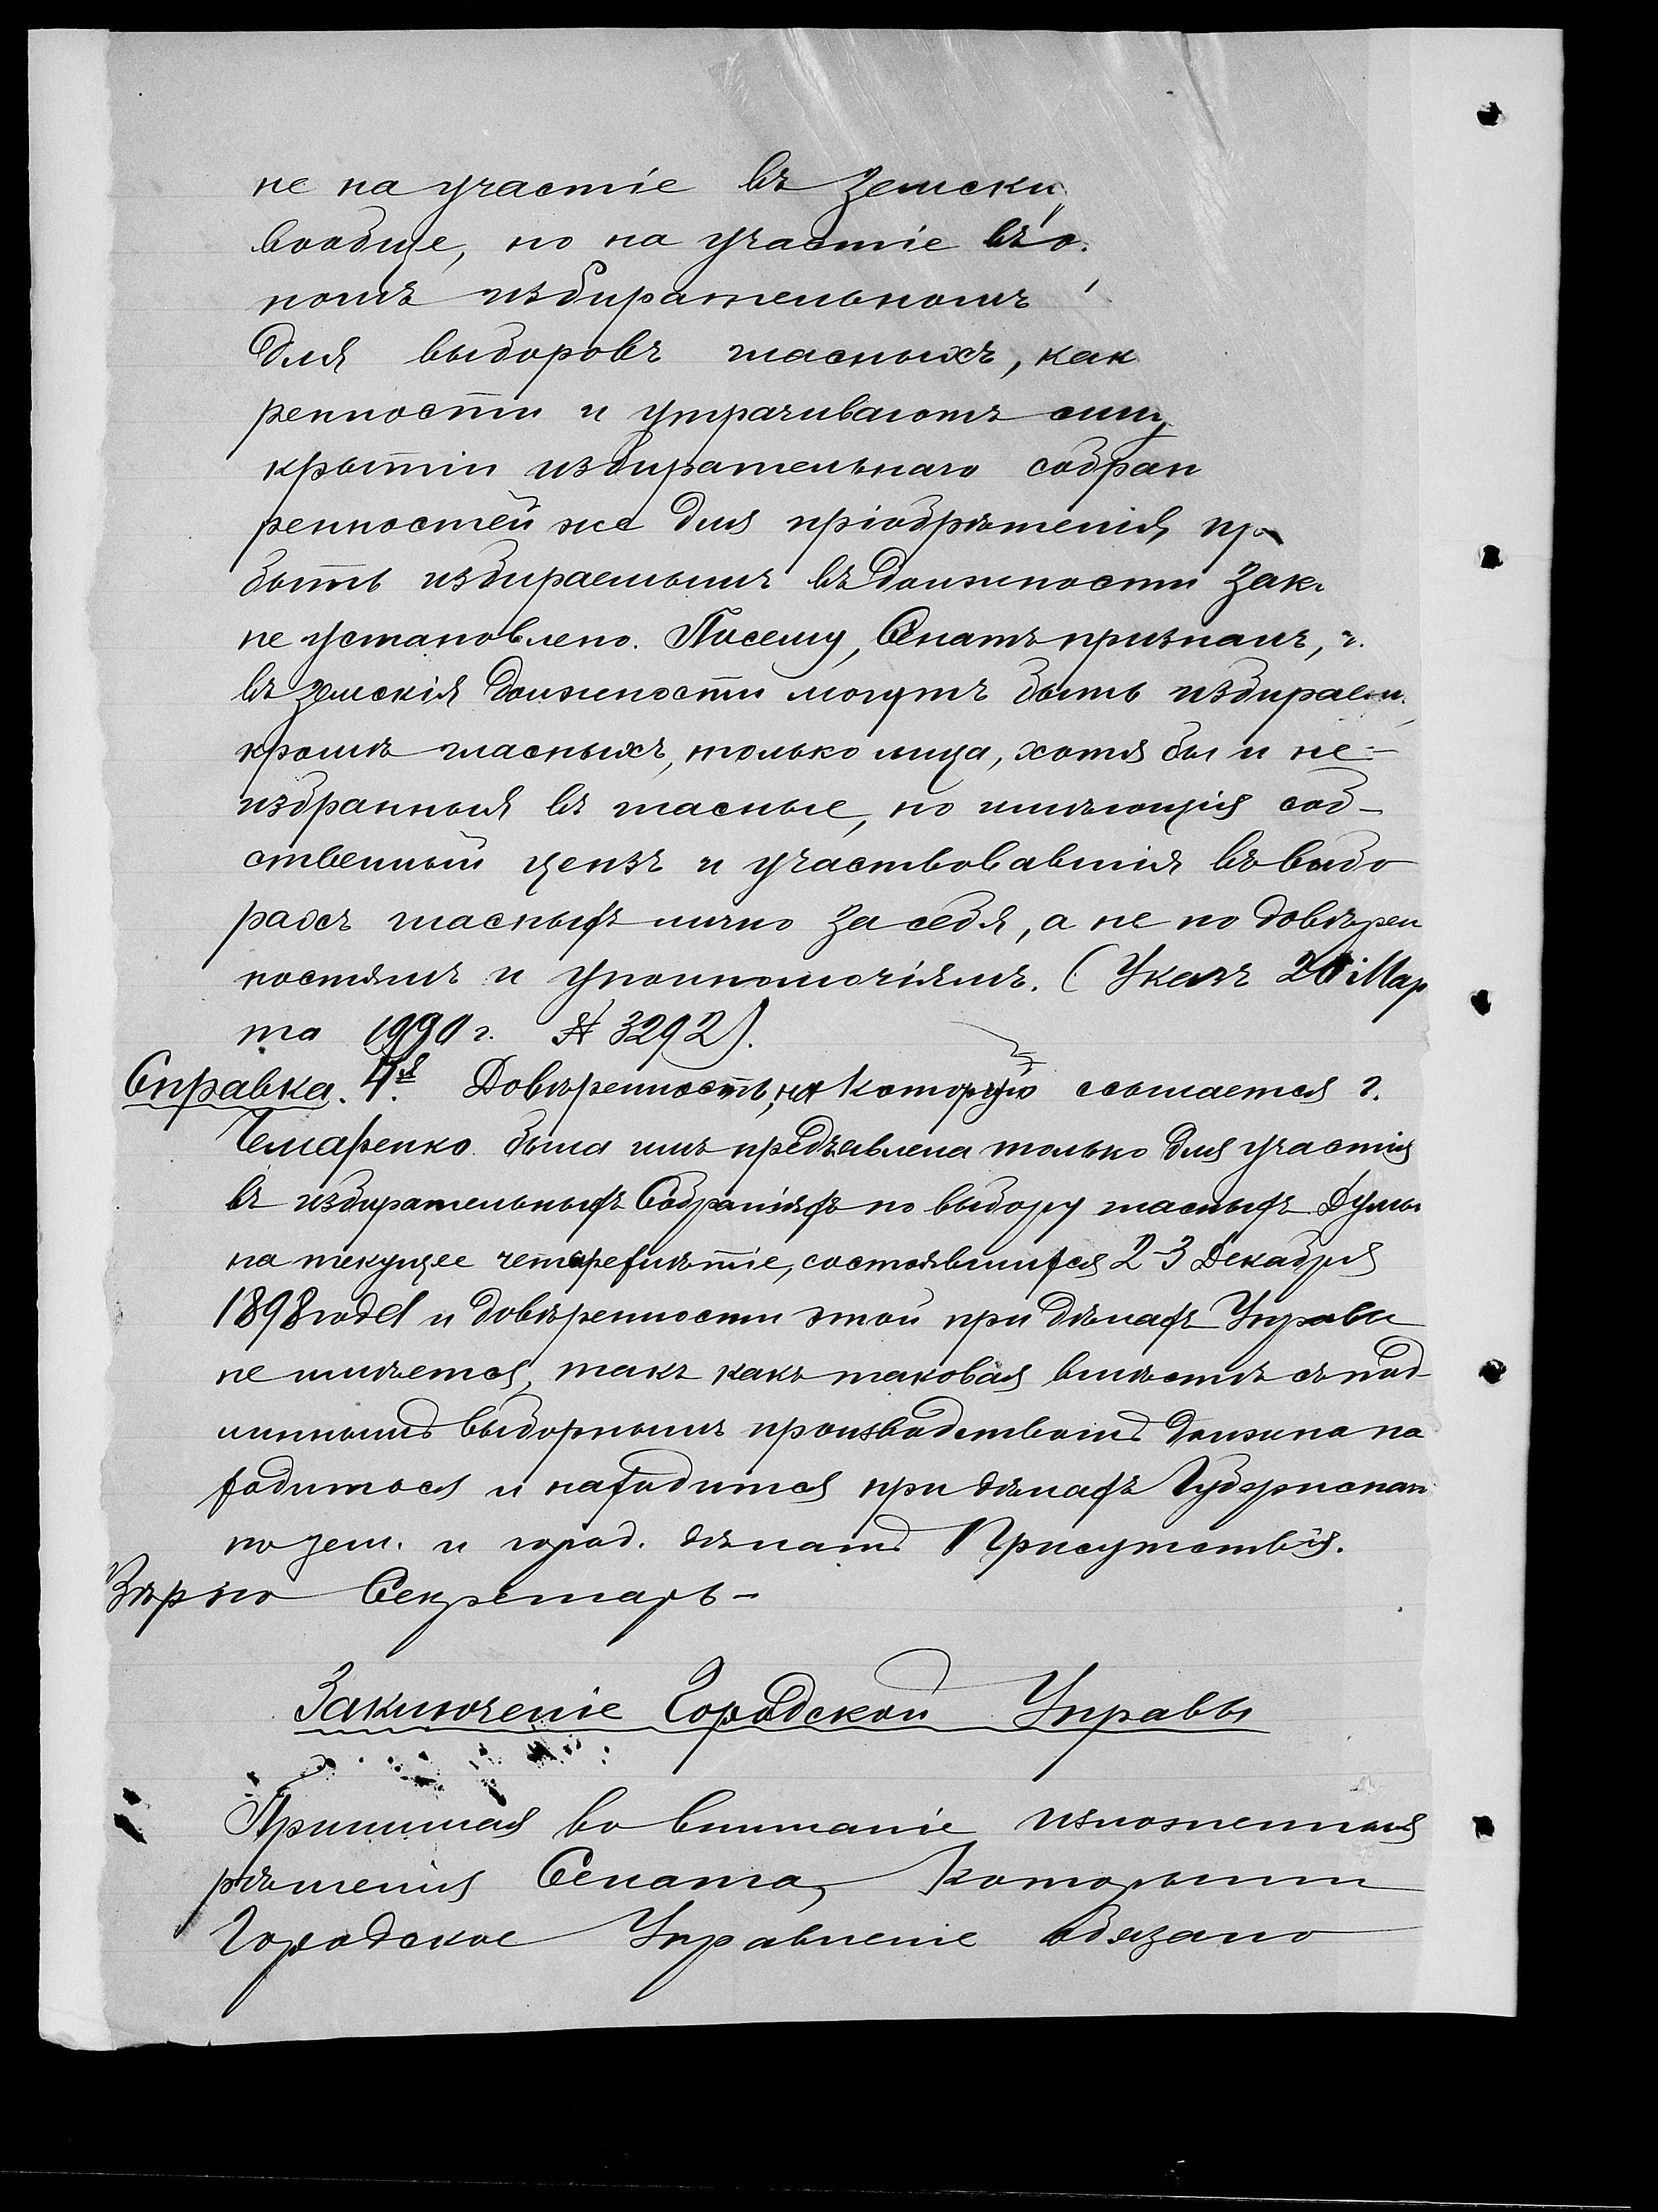 не на участіе въ земски
вообще, но на участіе въ о
номъ избирательномъ
для выборовъ гласныхъ, как
ренности и утрачиваютъ силу
крытіи избирательнаго собран
ренностей же для пріобрѣтенія пра
быть избираемымъ въ должности зак
не установлено. Посему, Сенатъ призналъ, ч
въ земскія должности могутъ быть избираем
кромѣ гласныхъ, только лица, хотя бы и не-
избранныя въ гласные, но имѣющія соб-
ственный цензъ и участвовавшія въ выбо
рахъ гласныхъ лично за себя, а не по довѣрен
ностямъ и уполномочіямъ. (Указъ 20 Мар
та г. № 3292).
Справка. 4я. Довѣренность, на которую ссылается г.
Чемаренко была имъ предъявлена только для участія
въ избирательныхъ Собраніяхъ по выбору гласныхъ Думы
на текущее четырехлѣтіе, состоявшихся 2-3 Декабря
1898 года и довѣренности этой при дѣлахъ Управы
не имѣется, такъ какъ таковая вмѣстѣ съ под
линнымъ выборнымъ производствомъ должна на
ходиться и находится при дѣлахъ Губернскаго
по зем. и город. дѣламъ Присутствія.
Вѣрно Секретарь -
Заключеніе Городской Управы
Принимая во вниманіе изложенныя
рѣшенія Сената, которыми
Городское Управленіе обязано